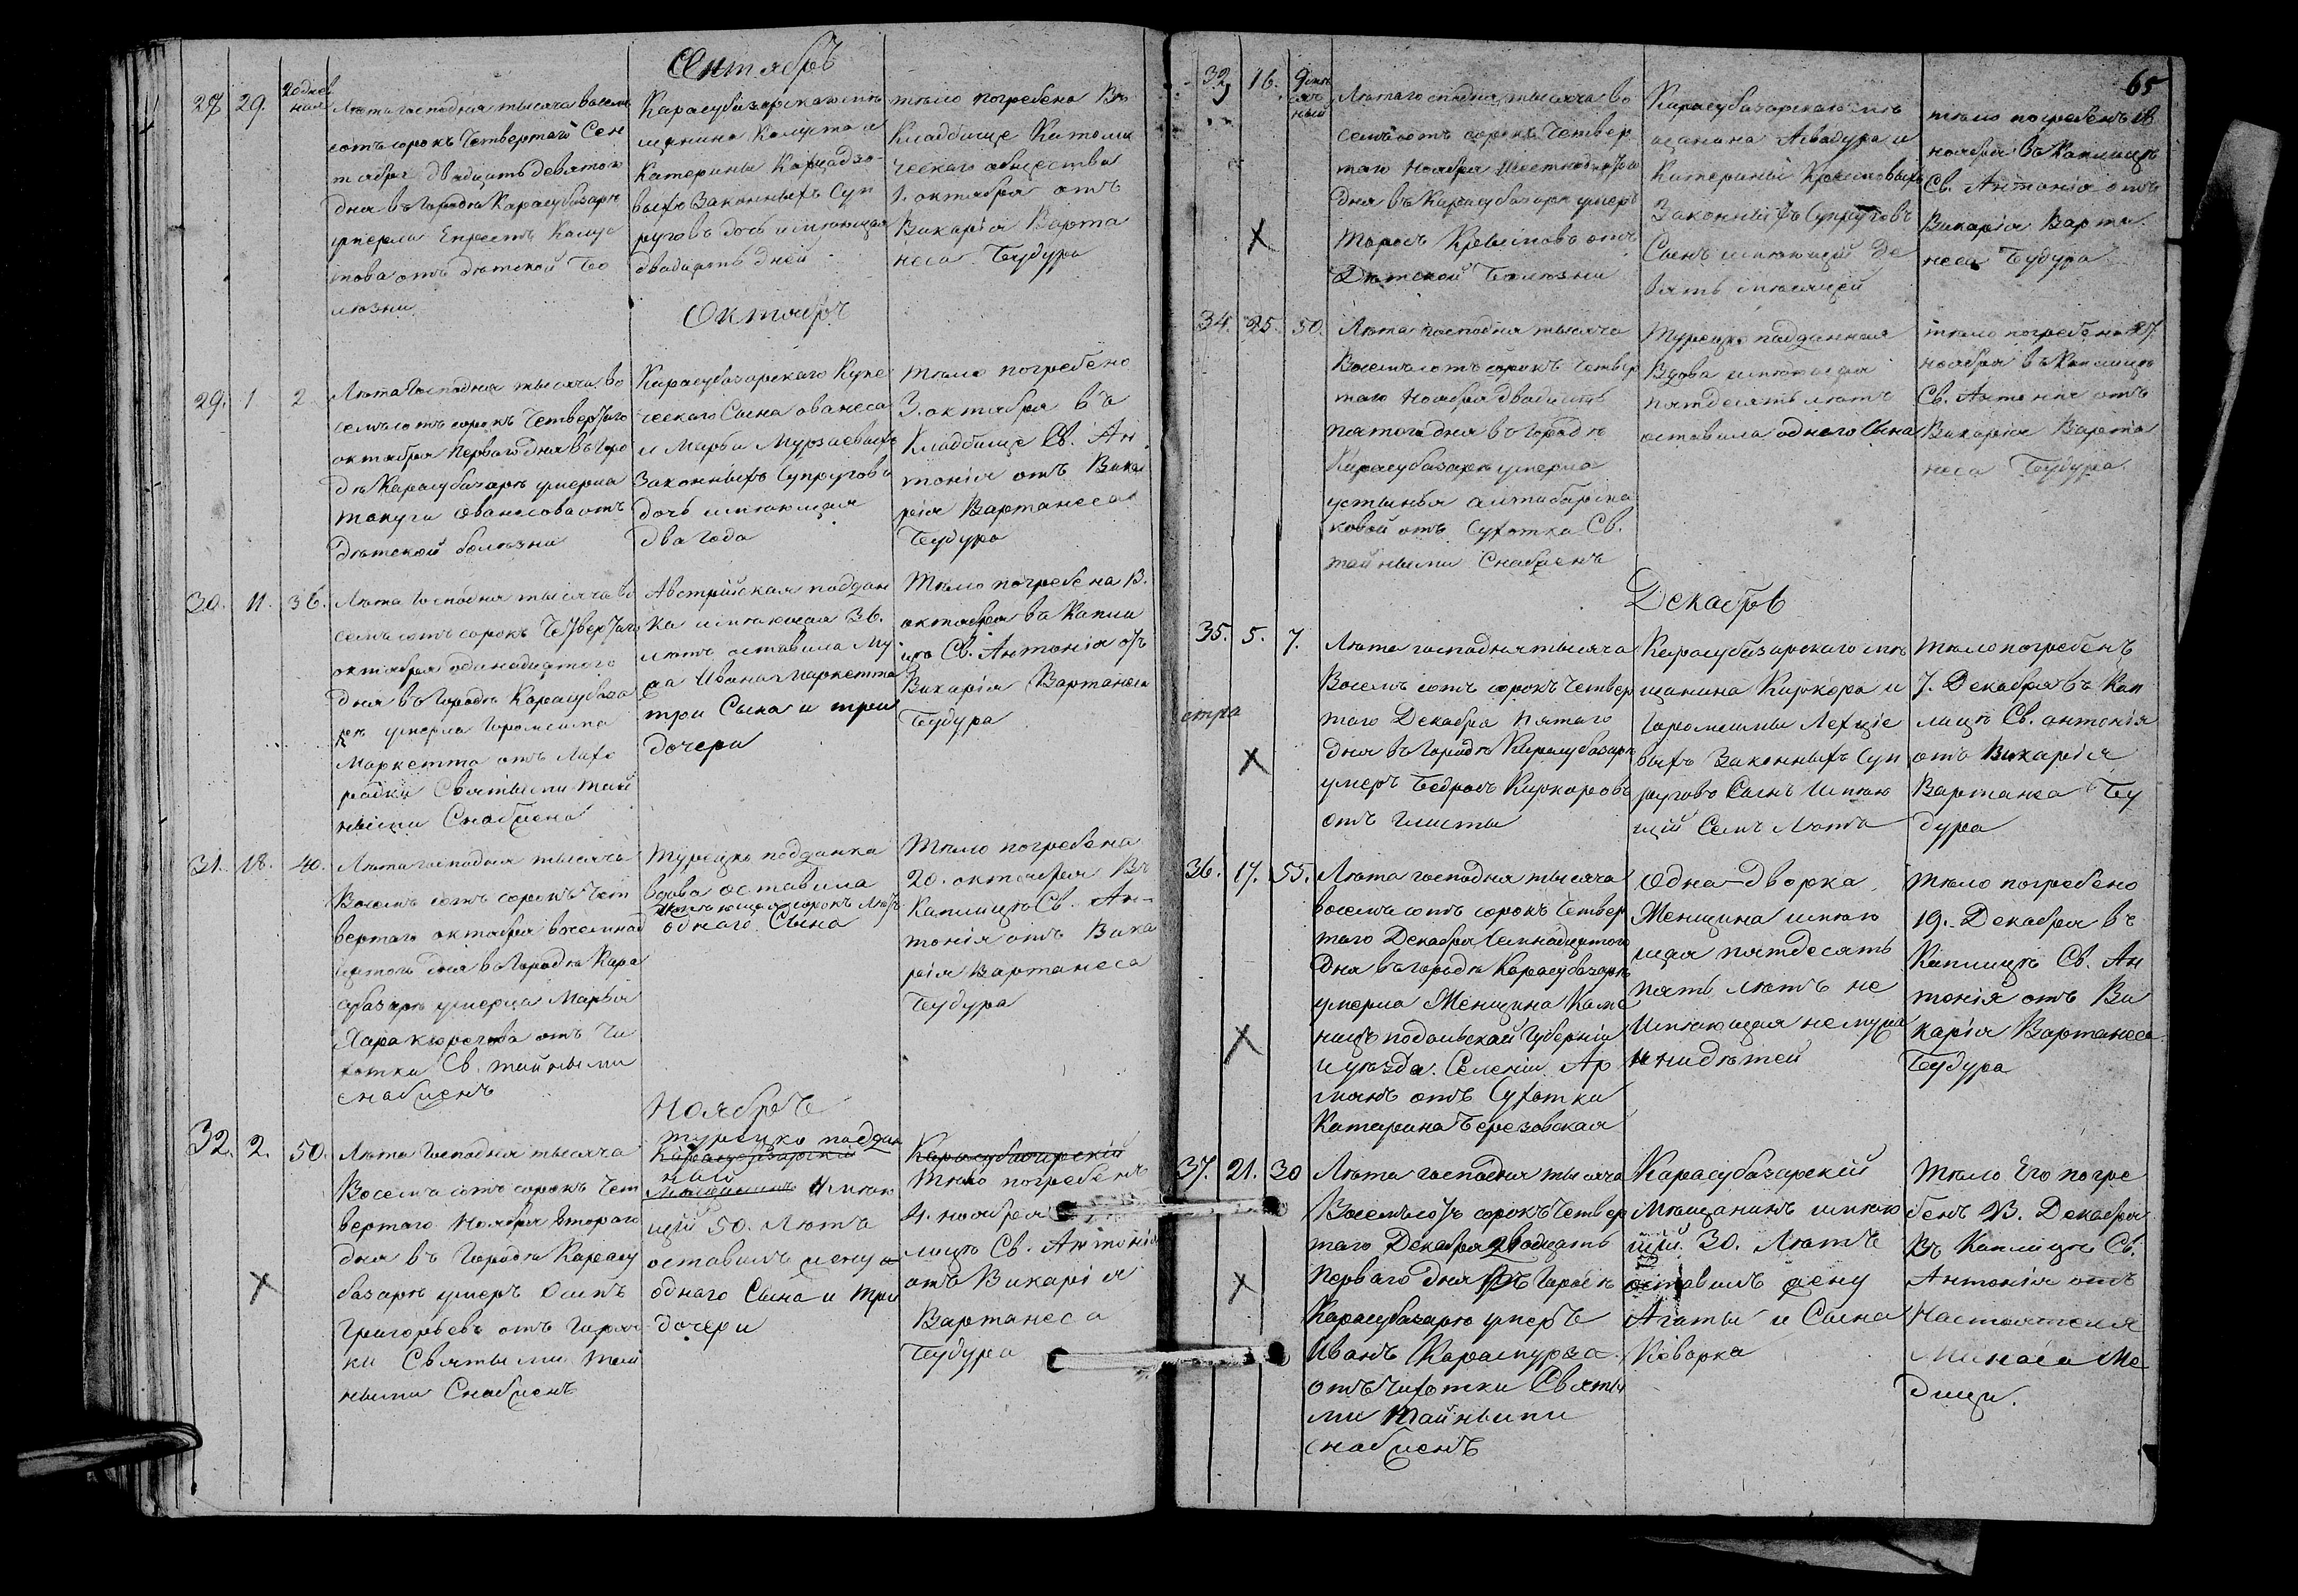 Сентябрь
27. 29. 20 днев
ная
Лѣта господня тысяча восем
сотъ сорокъ Четвертаго Сен
тября двадцать девятого
дня въ Городѣ Карасубазарѣ
умерла Калус
това отъ дѣтской бо
лѣзни
Карасубазарскаго мѣ
щанина Калуста и
Катерины
выхъ Законныхъ Суп
руговъ дочь имѣющая
двадцать дней
тѣло погребена Въ
Кладбище Католи
ческаго общества
1. октября отъ
Викарія Варта
неса Теудура
Октябрь
29. 1 2
Лѣта Господня тысяча во
семьсотъ сорокъ Четвертаго
октября перваго дня въ Горо
дѣ Карасубазарѣ умерла
Ованесова отъ
Дѣтской болѣзни
Карасубазарскаго Купе
ческаго Сына Ованеса
и Марьи Мурзаевыхъ
Законныхъ Супруговъ
дочь имѣющая
два года
Тѣло погребено
3. октября въ
Кладбище Св. Ан
тонія отъ Вика
рія Вартанеса
Теудура
30. 11. 36.
Лѣта Господня тысяча во
семь сотъ сорокъ Четвертаго
октября одинадцатого
дня въ Городѣ Карасубаза
рѣ умерла
Маркетта отъ Лихо
радки Святыми Тай
ными Снабжена
Австрійская поддан
ка имѣющая 36.
лѣтъ оставила Му
жа Ивана Маркетта
три Сына и три
дочери
Тѣло погребена 13.
октября въ Капли
цѣ Св. Антонія отъ
Викарія Вартанеса
Теудура
31. 18. 40.
Лѣта господня тысяча
Восемь сотъ сорокъ Чет
вертаго октября восемнад
цатого дня въ Городѣ Кара
субазарѣ умерла Марья
отъ Чи
хотки Св. тайными
снабженъ
Турецко подданка
вдова оставила
имѣющая сорокъ лѣтъ
однаго Сына
Тѣло погребена
20. октября Въ
Каплицѣ Св. Ан-
тонія отъ Вика
рія Вартанеса
Теудура
Ноябрь
32. 2. 50.
Лѣта Господня тысяча
Восемь сотъ сорокъ Чет
вертаго Ноября втораго
дня въ Городѣ Карасу
базарѣ умеръ Осипъ
Григорьевъ отъ Горяч
ки Святыми Тай
ными Снабженъ
турецко поддан
Карасубазарскій
ный
Мещанинъ Имѣю
щій 50. Лѣтъ
оставилъ жену и
однаго Сына и три
дочери
Карасубазарскій
Тѣло погребенъ
4. ноября
лицѣ Св. Антонія
отъ Викарія
Вартанеса
Теудура
65
33 16. 9 мѣс
яч
ный
Лѣта господня тысяча во
семьсотъ сорокъ Четвер
таго Ноября Шестнадцатаго
дня въ Карасубазарѣ умеръ
Торосъ отъ
Дѣтской Болѣзни
Карасубазарскаго мѣ
щанина Асвадура и
Катерины
Законныхъ Супруговъ
Сынъ имѣющій Де
вять мѣсяцей
тѣло погребенъ 18
ноября въ Каплицѣ
Св. Антонія отъ
Викарія Варта
неса Теудура
34. 25. 50.
Лѣта господня тысяча
Восемьсотъ сорокъ Четвер
таго Ноября двадцать
пятого дня въ Городѣ
Карасубазарѣ умерла
устинья
ковой отъ Сухотки Св.
тайными Снабженъ
Турецко подданная
Вдова имѣющая
пятдесять лѣтъ
оставила одного Сына
тѣло погребено 27.
ноября въ Каплицѣ
Св. Антонія отъ
Викарія Варта
неса Теудура
Декабрь
35. 5. 7.
Лѣта господня тысяча
Восемь сотъ сорокъ Четвер
таго Декабря Пятаго
дня въ Городѣ Карасубазарѣ
умеръ Бедросъ Киркоровъ
отъ глисты
Карасубазарскаго мѣ
щанина Киркора и
выхъ Законныхъ Суп
руговъ Сынъ Имѣю
щій Семь Лѣтъ
Тѣло погребенъ
7. Декабря въ Кап
лицѣ Св. антонія
отъ Викарія
Вартанеса Теу
дура
36. 17. 55.
Лѣта господня тысяча
восемь сотъ сорокъ Четвер
таго Декабря Семнадцатого
Дня въ городѣ Карасубазарѣ
умерла Женщина Каме
ницъ подольской Губерніи
и уѣзда. Селеніи Ар
отъ Сухотки
Катарина Березовская
Одна-дворка
Женщина имѣю
щая пятдесять
пять лѣтъ не
Имѣющая не мужа
и ни дѣтей
Тѣло погребено
19. Декабря въ
Каплицѣ Св. Ан
тонія отъ Ви
карія Вартанеса
Теудура
37. 21. 30
Лѣта господня тысяча
Восемьсотъ сорокъ Четвер
таго Декабря двадцать
Перваго дня Въ Городѣ
Карасубазарѣ умеръ
Иванъ Карамурза
отъ чихотки Святы
ми Тайными
снабженъ
Карасубазарскій
Мѣщанинъ имѣю
щій. 30. Лѣтъ
оставилъ жену
Агаты и Сына
Кеворка
Тѣло Его погре
бенъ 23. Декабря
Въ Каплицѣ Св.
Антонія отъ
Настоятеля
Минаса Ме